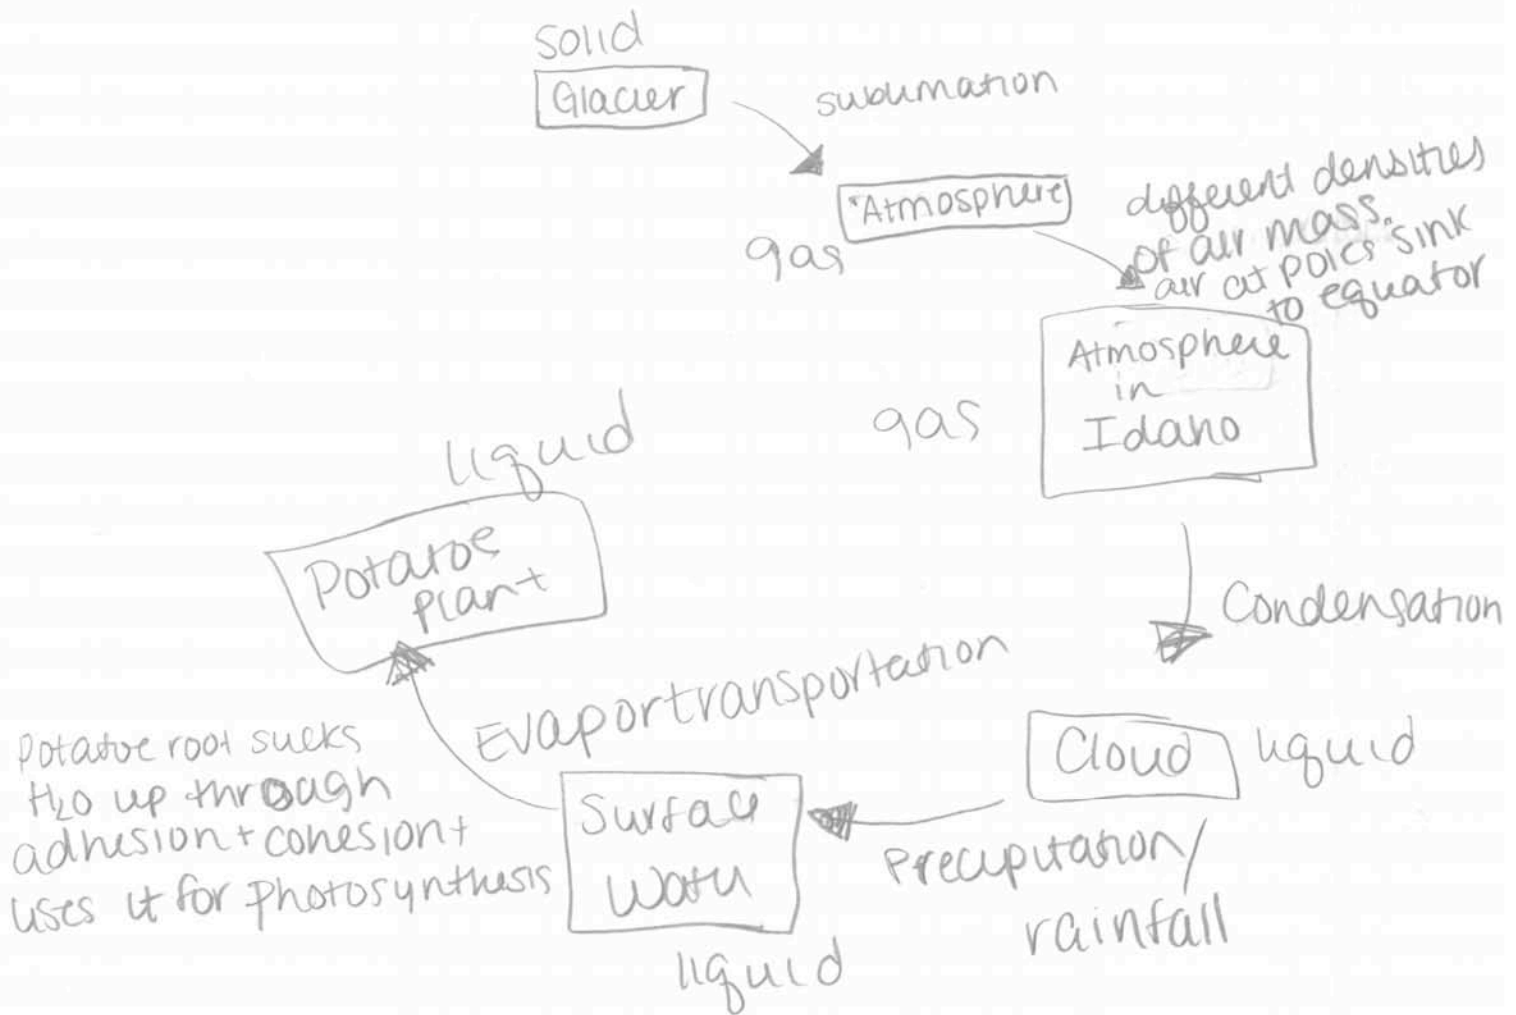 solid
Glacier
sublimation
Atmosphere
gas
different densities
of air mass.
air at poles sink
to equator
Atmosphere
in
Idaho
gas
Condensation
Cloud
liquid
Precipitation/
rainfall
Surface
Water
liquid
Evaportransportation
Potatoe root sucks
H2O up through
adhesion + cohesion +
uses it for photosynthesis
Potatoe
Plant
liquid